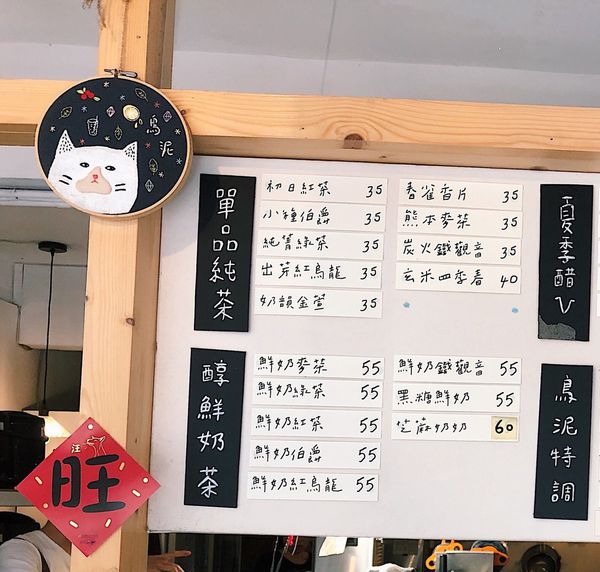 嗚泥
單品純茶
初日紅茶 35
小種伯爵 35
純菁綠茶 35
出芽紅烏龍 35
奶韻金萱 35
春雀香片 35
熊本麥茶 35
炭火鐵觀音 35
玄米四季春 40
夏季醋V
醇鮮奶茶
鮮奶麥茶 55
鮮奶綠茶 55
鮮奶紅茶 55
鮮奶伯爵 55
鮮奶紅烏龍 55
鮮奶鐵觀音 55
黑糖鮮奶 55
芝麻奶奶 60
鳥泥特調
汪
旺